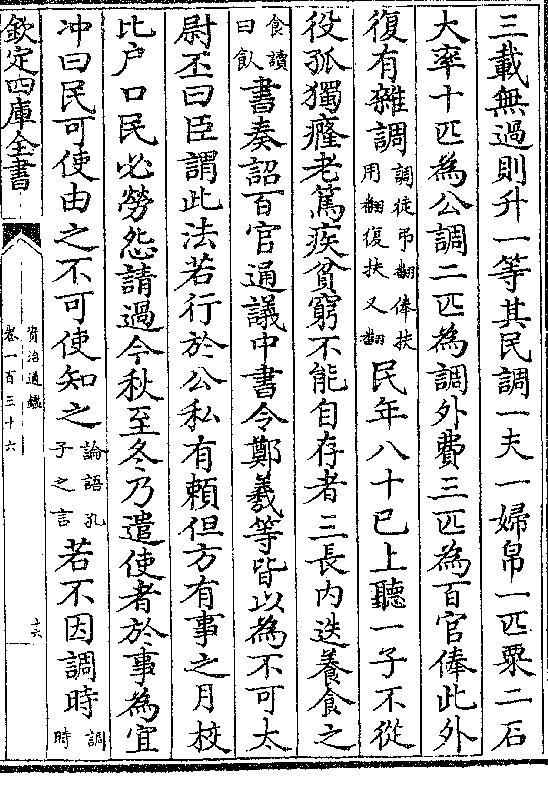 三載無過則升一等其民調一夫一婦帛一匹粟二石
大率十匹為公調二匹為調外費三匹為百官俸此外
復有雜調調徒弔翻俸扶用翻復扶又翻民年八十已上聽一子不從
役孤獨癃老篤疾貧窮不能自存者三長内迭養食之
食讀曰飤書奏詔百官通議中書令鄭羲等皆以為不可太
尉丕曰臣謂此法若行於公私有頼但方有事之月校
比户口民必勞怨請過今秋至冬乃遣使者於事為宜
冲曰民可使由之不可使知之論語孔子之言若不因調時調時
欽定四庫全書
資治通鑑
卷一百三十六
十六